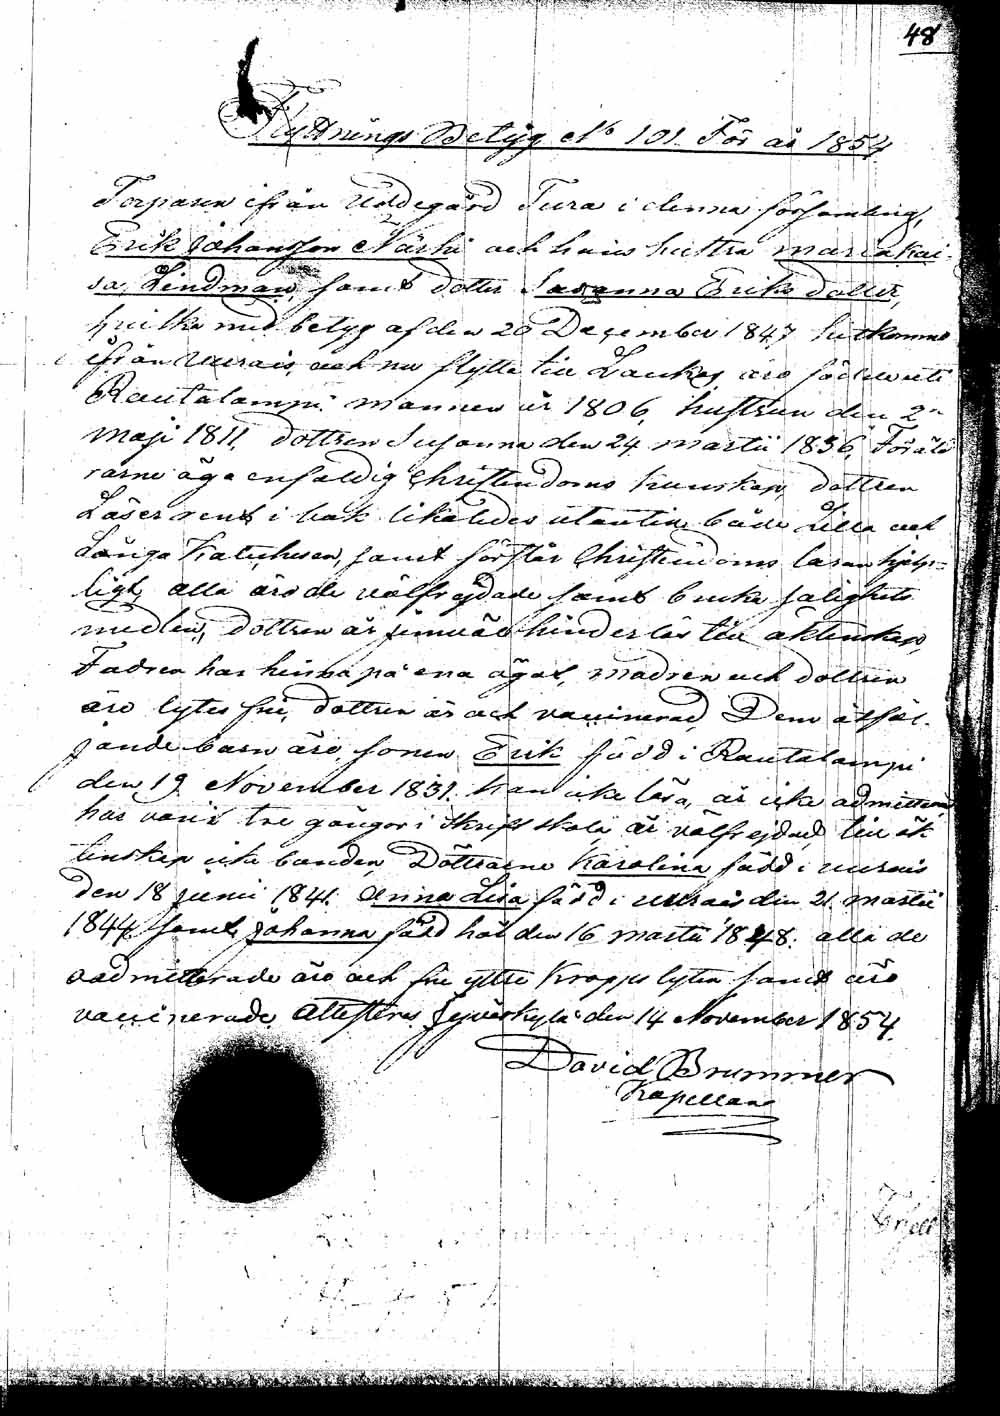 48
Flyttnings Betyg No 101. För år 1854.
Torparen ifrån Uddegård Tura i denna församling,
Erik Johansson Närhi och hans hustru Maria Kai-
sa Lindman, samt dotter Susanna Eriks dotter,
hvilka med betyg af den 20 December 1847 hitkommo
ifrån Uurais, och nu flytta till Laukas, äro födde uti
Rautalampi mannen år 1806, hustrun den 2n
Maji 1811, dottren Susanna den 24 Martii 1836, Föräld
rarne äga enfaldig Christendoms kunskap, dottren
Läser rent i bok likaledes utantill både Lilla och
Långa Katechesen, samt förstår Christendoms läran hjelp=
ligt, alla äro de välfrejdade samt bruka salighets
medlen, dottren är jemväl hinderlös till äktenskap,
Fadren har hinna på ena ögat, modren och dottren
äro lytes fri, dottren är och vaccinerad, Dem åtföl-
jande barn äro, sonen Erik född i Rautalampi
den 19 November 1831. kan icke läsa, är icke admitterad
har varit tre gångor i Skrift skola är välfrejdad, till äk
tenskap icke bunden, Döttrarne Karolina född i Uurais
den 18 Junii 1841. Anna Lisa född i Uurais den 21 Martii
1844 samt Johanna född här den 16 Martii 1848. alla de
oadmitterade äro och fri yttre kropps lyten samt äro
vaccinerade. Attesteras Jyväskylä den 14 November 1854.
David Brummer
Kapellan